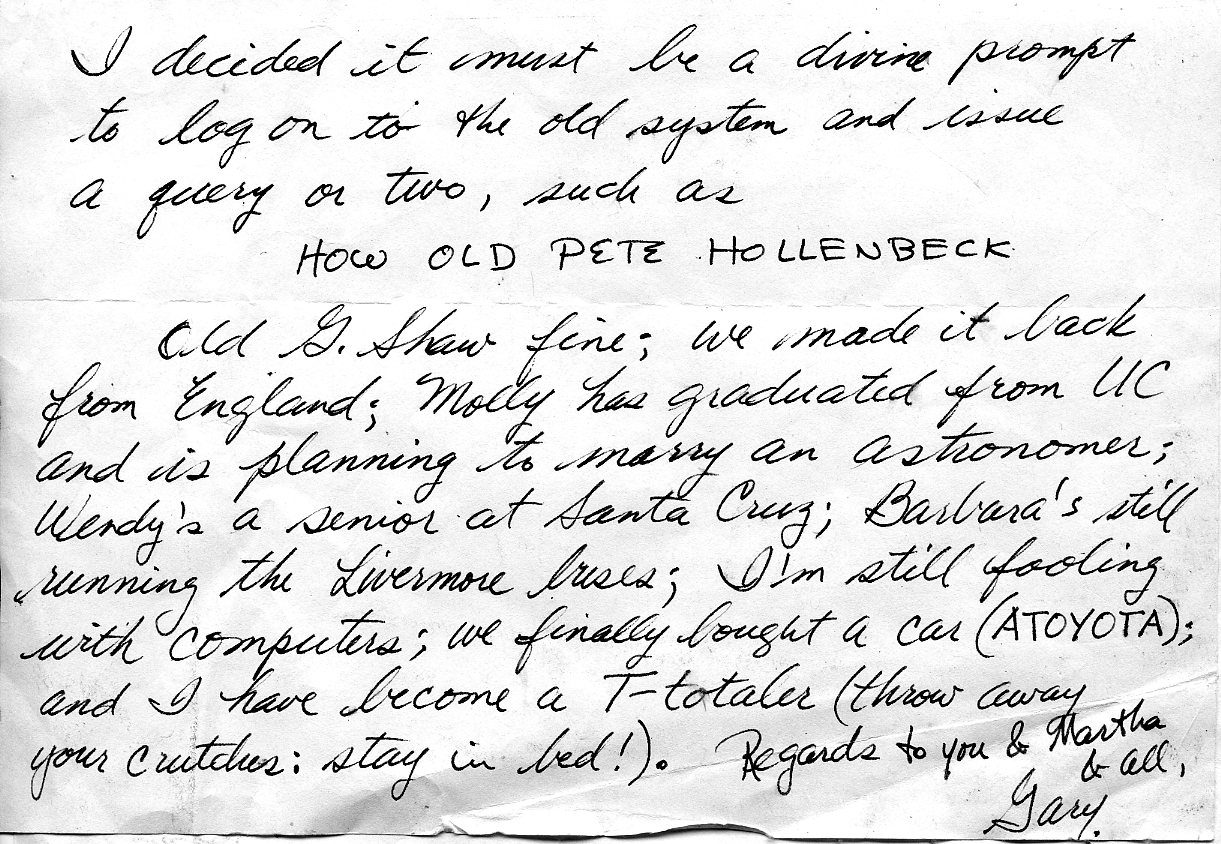 I decided it must be a divine prompt
to log on to the old system and issue
a query or two, such as
HOW OLD PETE HOLLENBECK
Old G. Shaw fine; we made it back
from England; Molly has graduated from UC
and is planning to marry an astronomer;
Wendy's a senior at Santa Cruz; Barbara's still
running the Livermore buses; I'm still fooling
with computers; we finally bought a car (ATOYOTA);
and I have become a T-totaler (throw away
your crutches: stay in bed!). Regards to you & Martha
& all,
Gary.